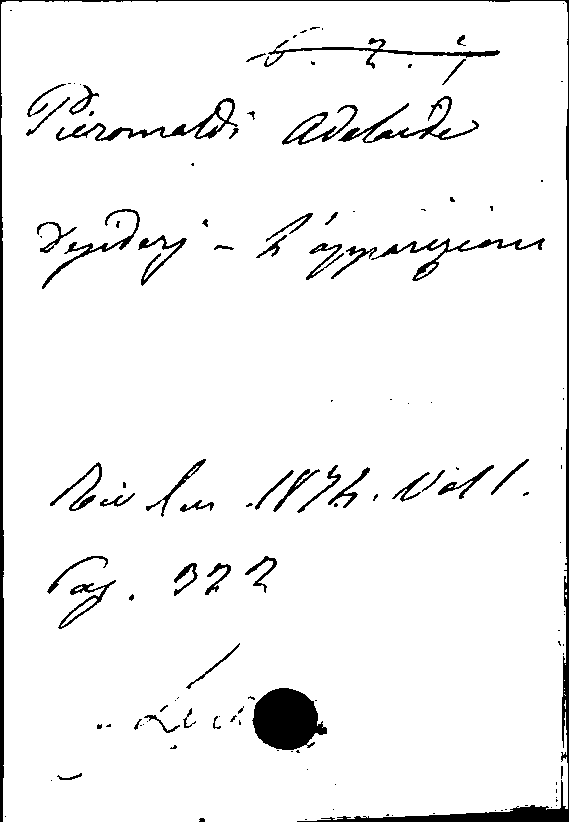 6. 2. 7
Pieromaldi Adelaide
Desiderj - L'apparizione
Riv. Lu 1874. Vol 1.
Pag. 322